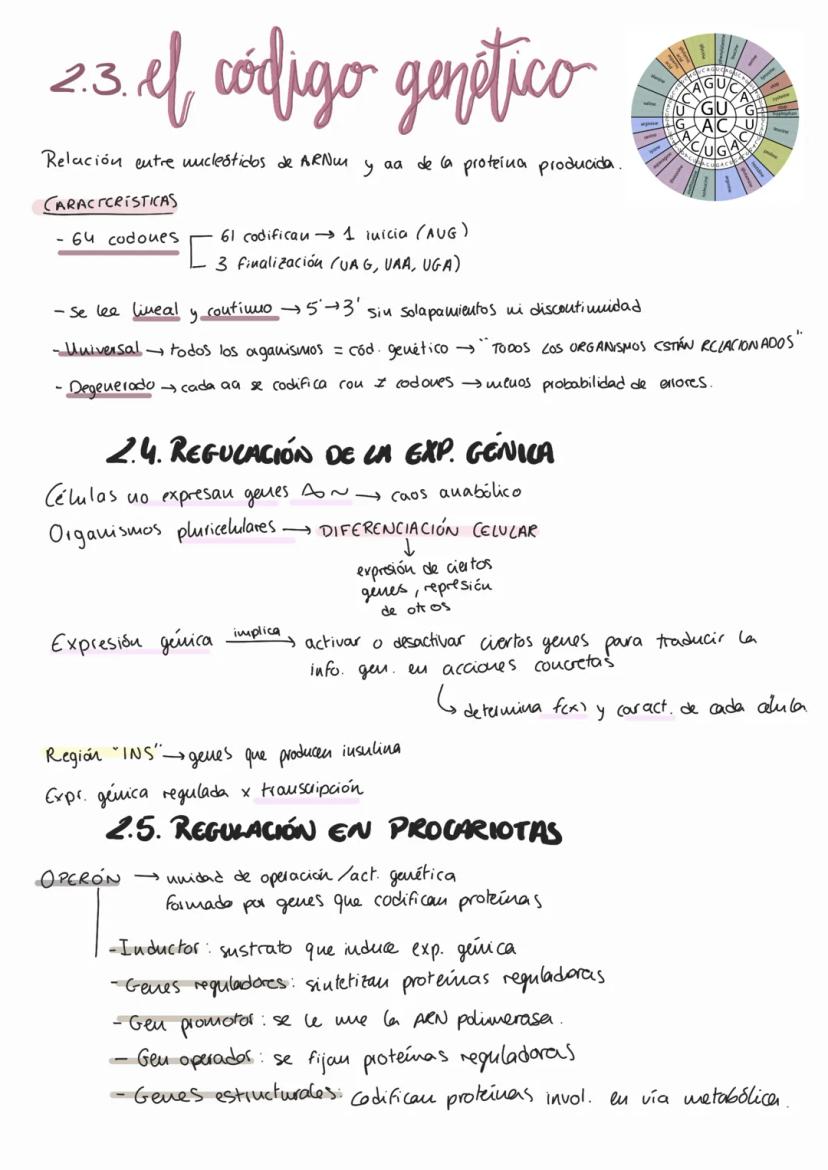 2.3. el código genético
Relación entre nucleótidos de ARNm y aa de la proteína producida.
CARACTERÍSTICAS
- 64 codones
61 codifican → 1 inicia (AUG)
3 finalización (UAG, UAA, UGA)
- Se lee lineal y continuo → 5'→3' sin solapamientos ni discontinuidad
- Universal → todos los organismos = cód. genético → "TODOS LOS ORGANISMOS ESTÁN RELACIONADOS"
- Degenerado → cada aa se codifica con ≠ codones → menos probabilidad de errores.
2.4. REGULACIÓN DE LA EXP. GÉNICA
Células no expresan genes → caos anabólico
Organismos pluricelulares → DIFERENCIACIÓN CELULAR
↓
expresión de ciertos
genes, represión
de otros
Expresión génica implica → activar o desactivar ciertos genes para traducir la
info. gen. en acciones concretas
↳ determina f(x) y caract. de cada célula
Región "INS" → genes que producen insulina
Expr. génica regulada x transcripción
2.5. REGULACIÓN EN PROCARIOTAS
OPERÓN → unidad de operación /act. genética
formado por genes que codifican proteínas
- Inductor: sustrato que induce exp. génica
- Genes reguladores: sintetizan proteínas reguladoras
- Gen promotor: se le une la ARN polimerasa.
- Gen operador: se fijan proteínas reguladoras
- Genes estructurales: codifican proteínas invol. en vía metabólica.